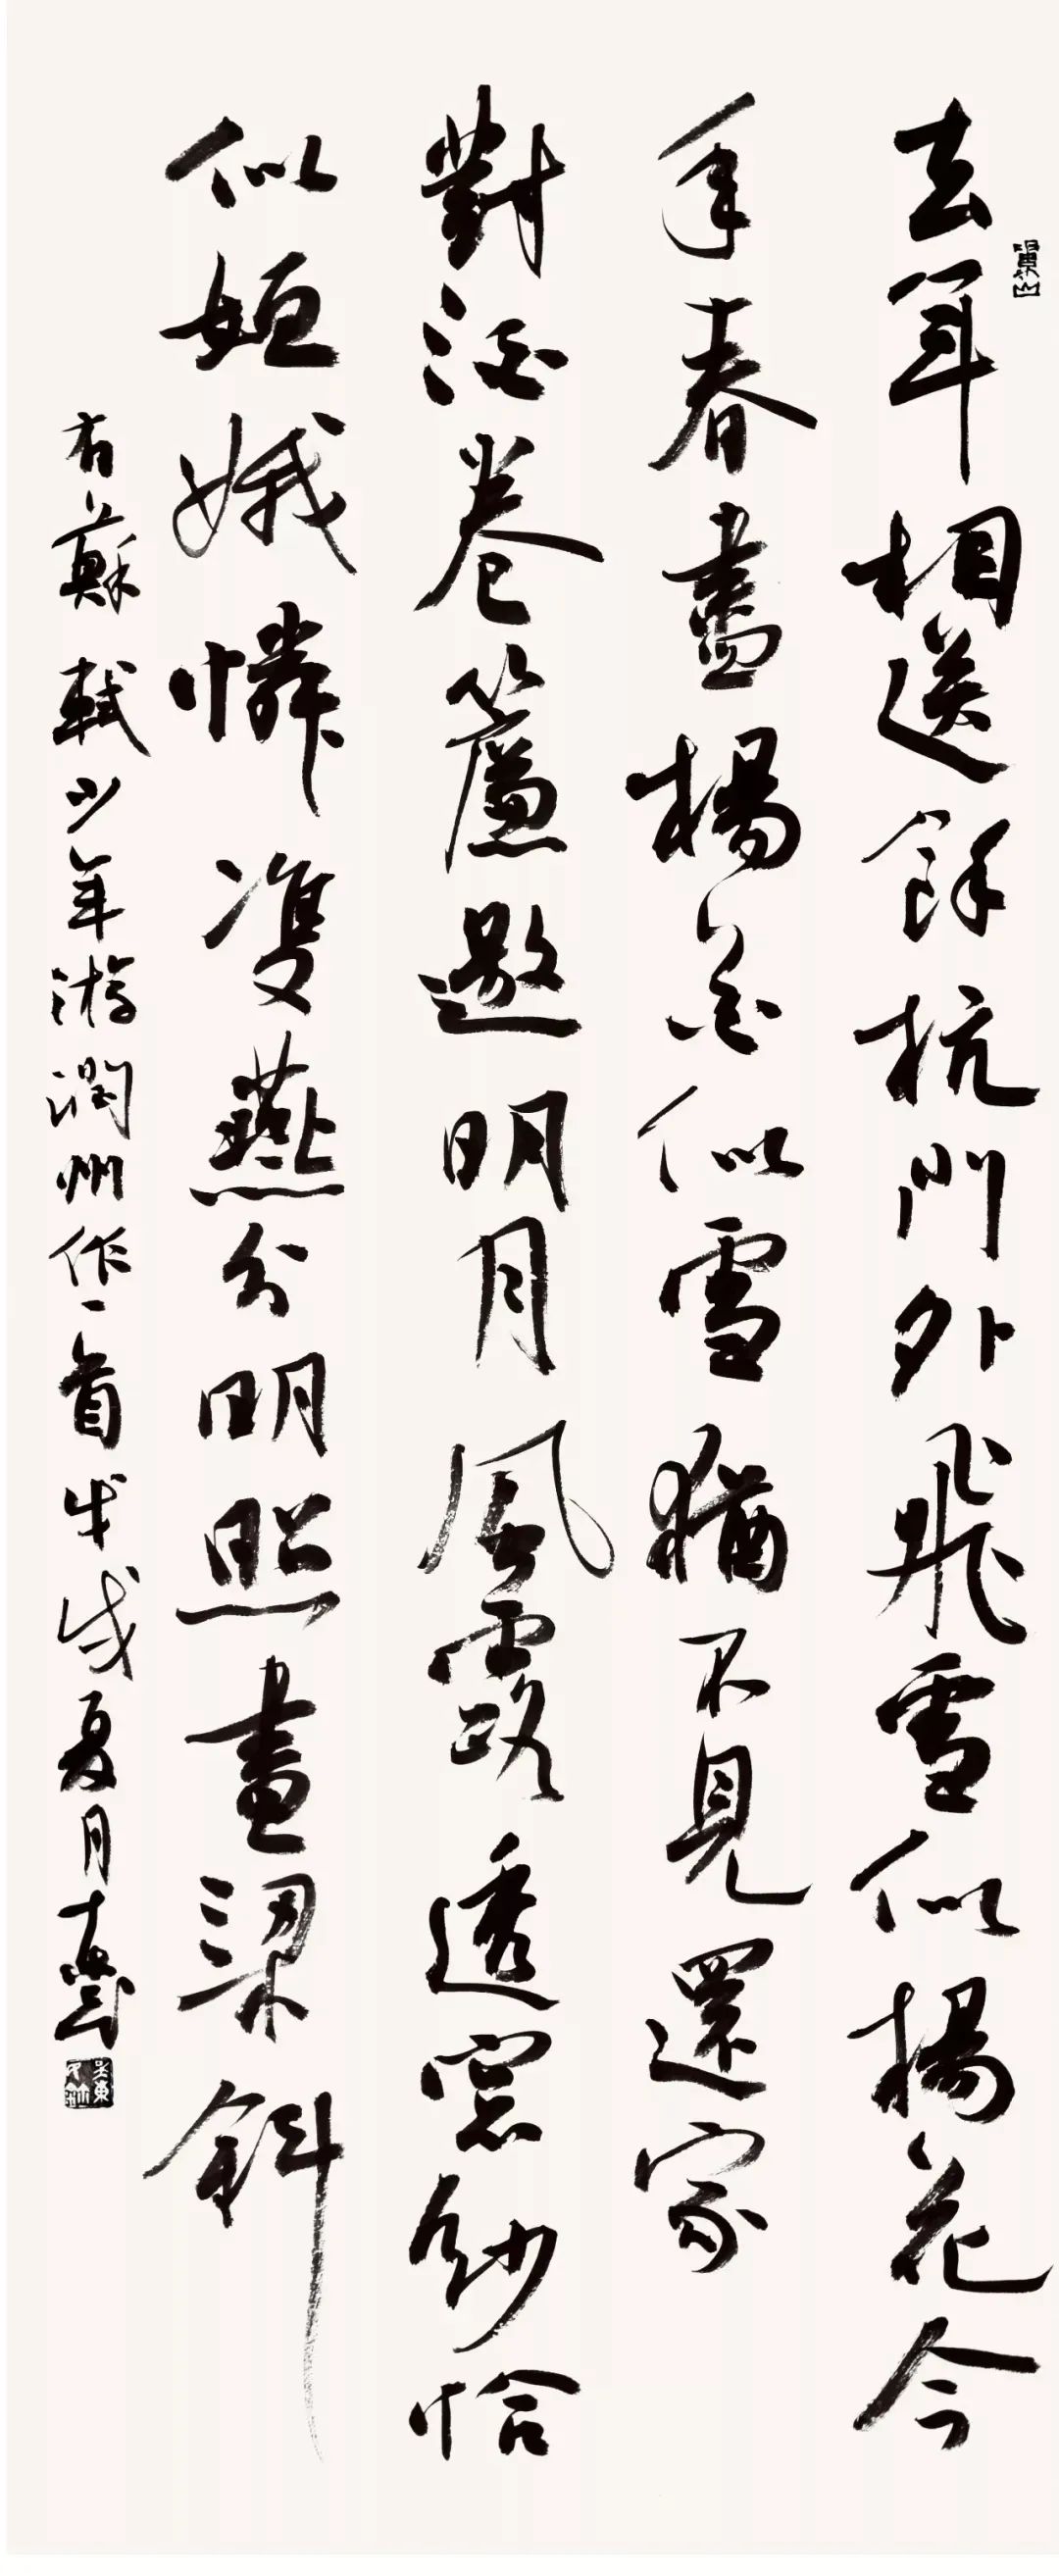 去年相送餘杭門外飛雪似楊花今
年春盡楊花似雪猶不見還家
對酒卷簾邀明月風露透窗紗恰
似姮娥憐雙燕分明照畫梁斜
右蘇軾少年游潤州作一首 戊戌夏月